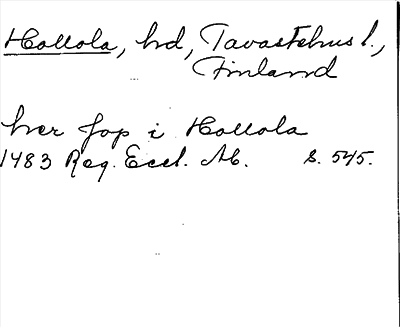 Hollola, hd, Tavastehus l.,
Finland
her Jop i Hollola
1483 Reg. Eccl. Ab. S. 545.